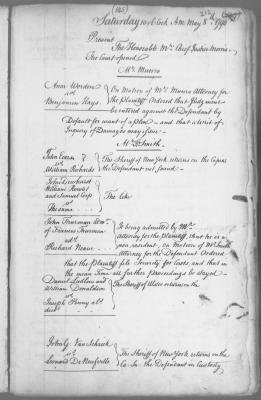 (145)
Saturday 10 oClock A.M. May 8th 1790
Present
The Honorable Mr. Chief Justice Morris
The Court opened
Mr. Munro
Ann Worden
vs
Benjamin Hays
On Motion of Mr. Munro Attorney for
the Plaintiff Ordered that Judgment
be entered against the Defendant by
Default for want of a Plea and that a Writ of
Inquiry of Damages may issue
Mr. B. Smith
John Evers
vs
William Richards
The Sheriff of New York returns on the Capias
the Defendant not found
John
William
and Samuel Corp
vs
The same
The like
John Thurman
of Francis Thurman
vs
Richard Neave
It being admitted by the
Attorney for the Plaintiff, that he is a
non resident, on Motion of Mr. Smith
Attorney for the Defendant Ordered
that the plaintiff file Security for Costs and that in
the mean Time all further Proceedings be stayed
Daniel Ludlow and
William Donaldson
vs
Joseph Penny
The Sheriff of Ulster returns on the
John G. Van Schaick
vs
Leonard De Neufville
The Sheriff of New York returns on the
Ca. Sa. the Defendant in Custody